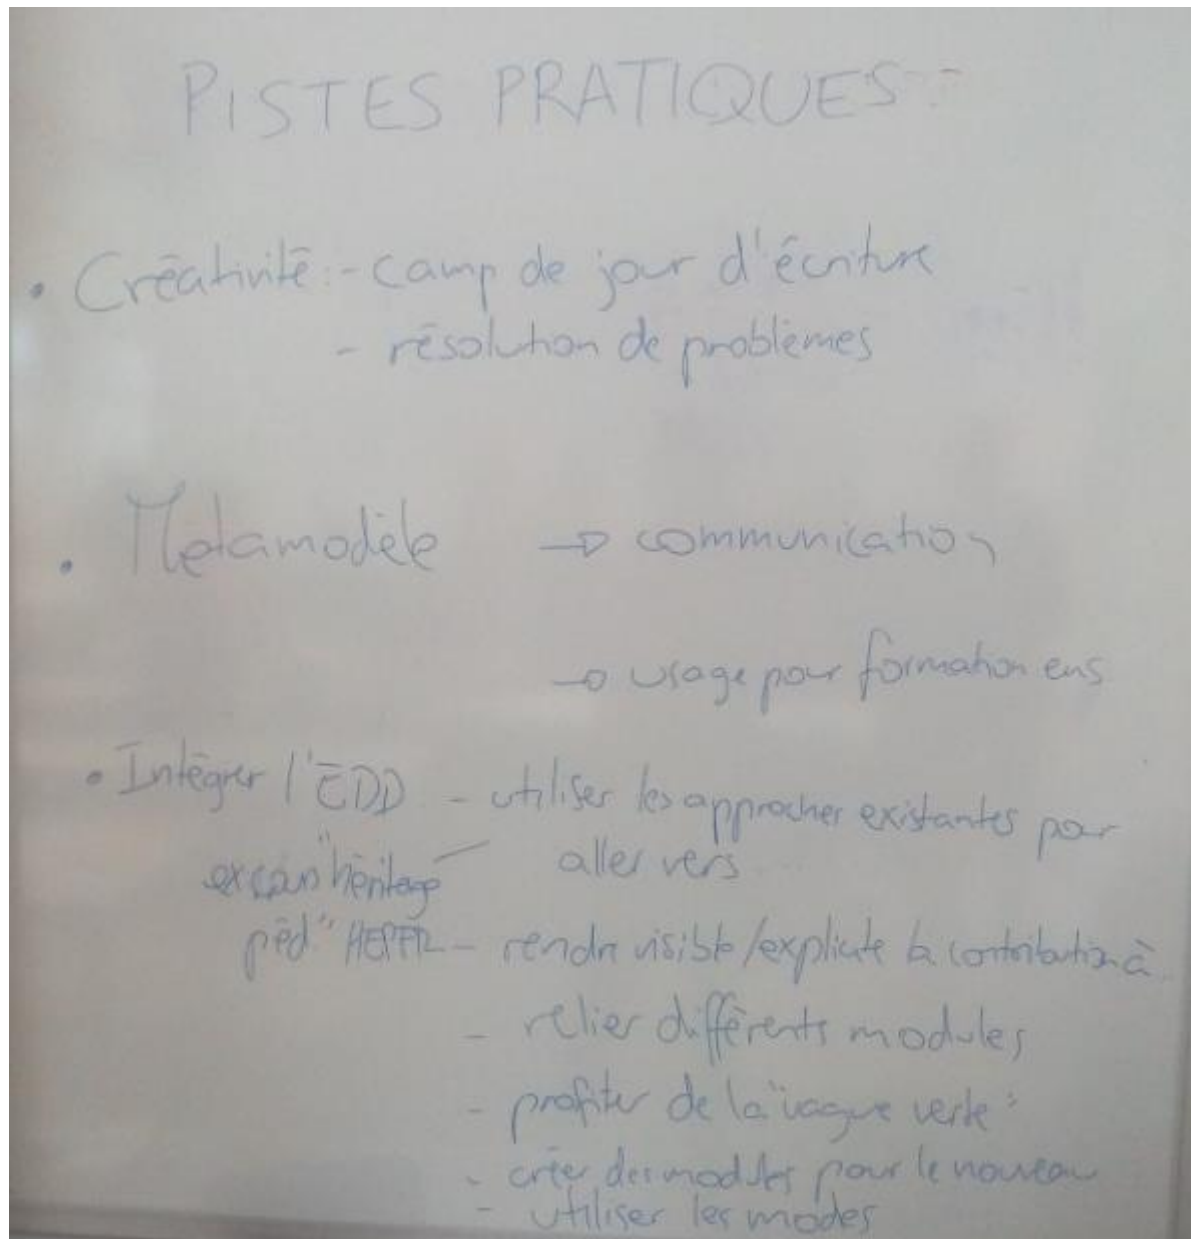 PISTES PRATIQUES :
• Créativité : - camp de jour d'écriture
- résolution de problèmes
• Métamodèle → communication
→ usage pour formation ens
• Intégrer l'EDD - utiliser les approches existantes pour
aller vers ...
"héritage
péd" - rendre visible/explicite la contribution à
- relier différents modules
- profiter de la "vague verte"
- créer des modules pour le nouveau
- utiliser les modes